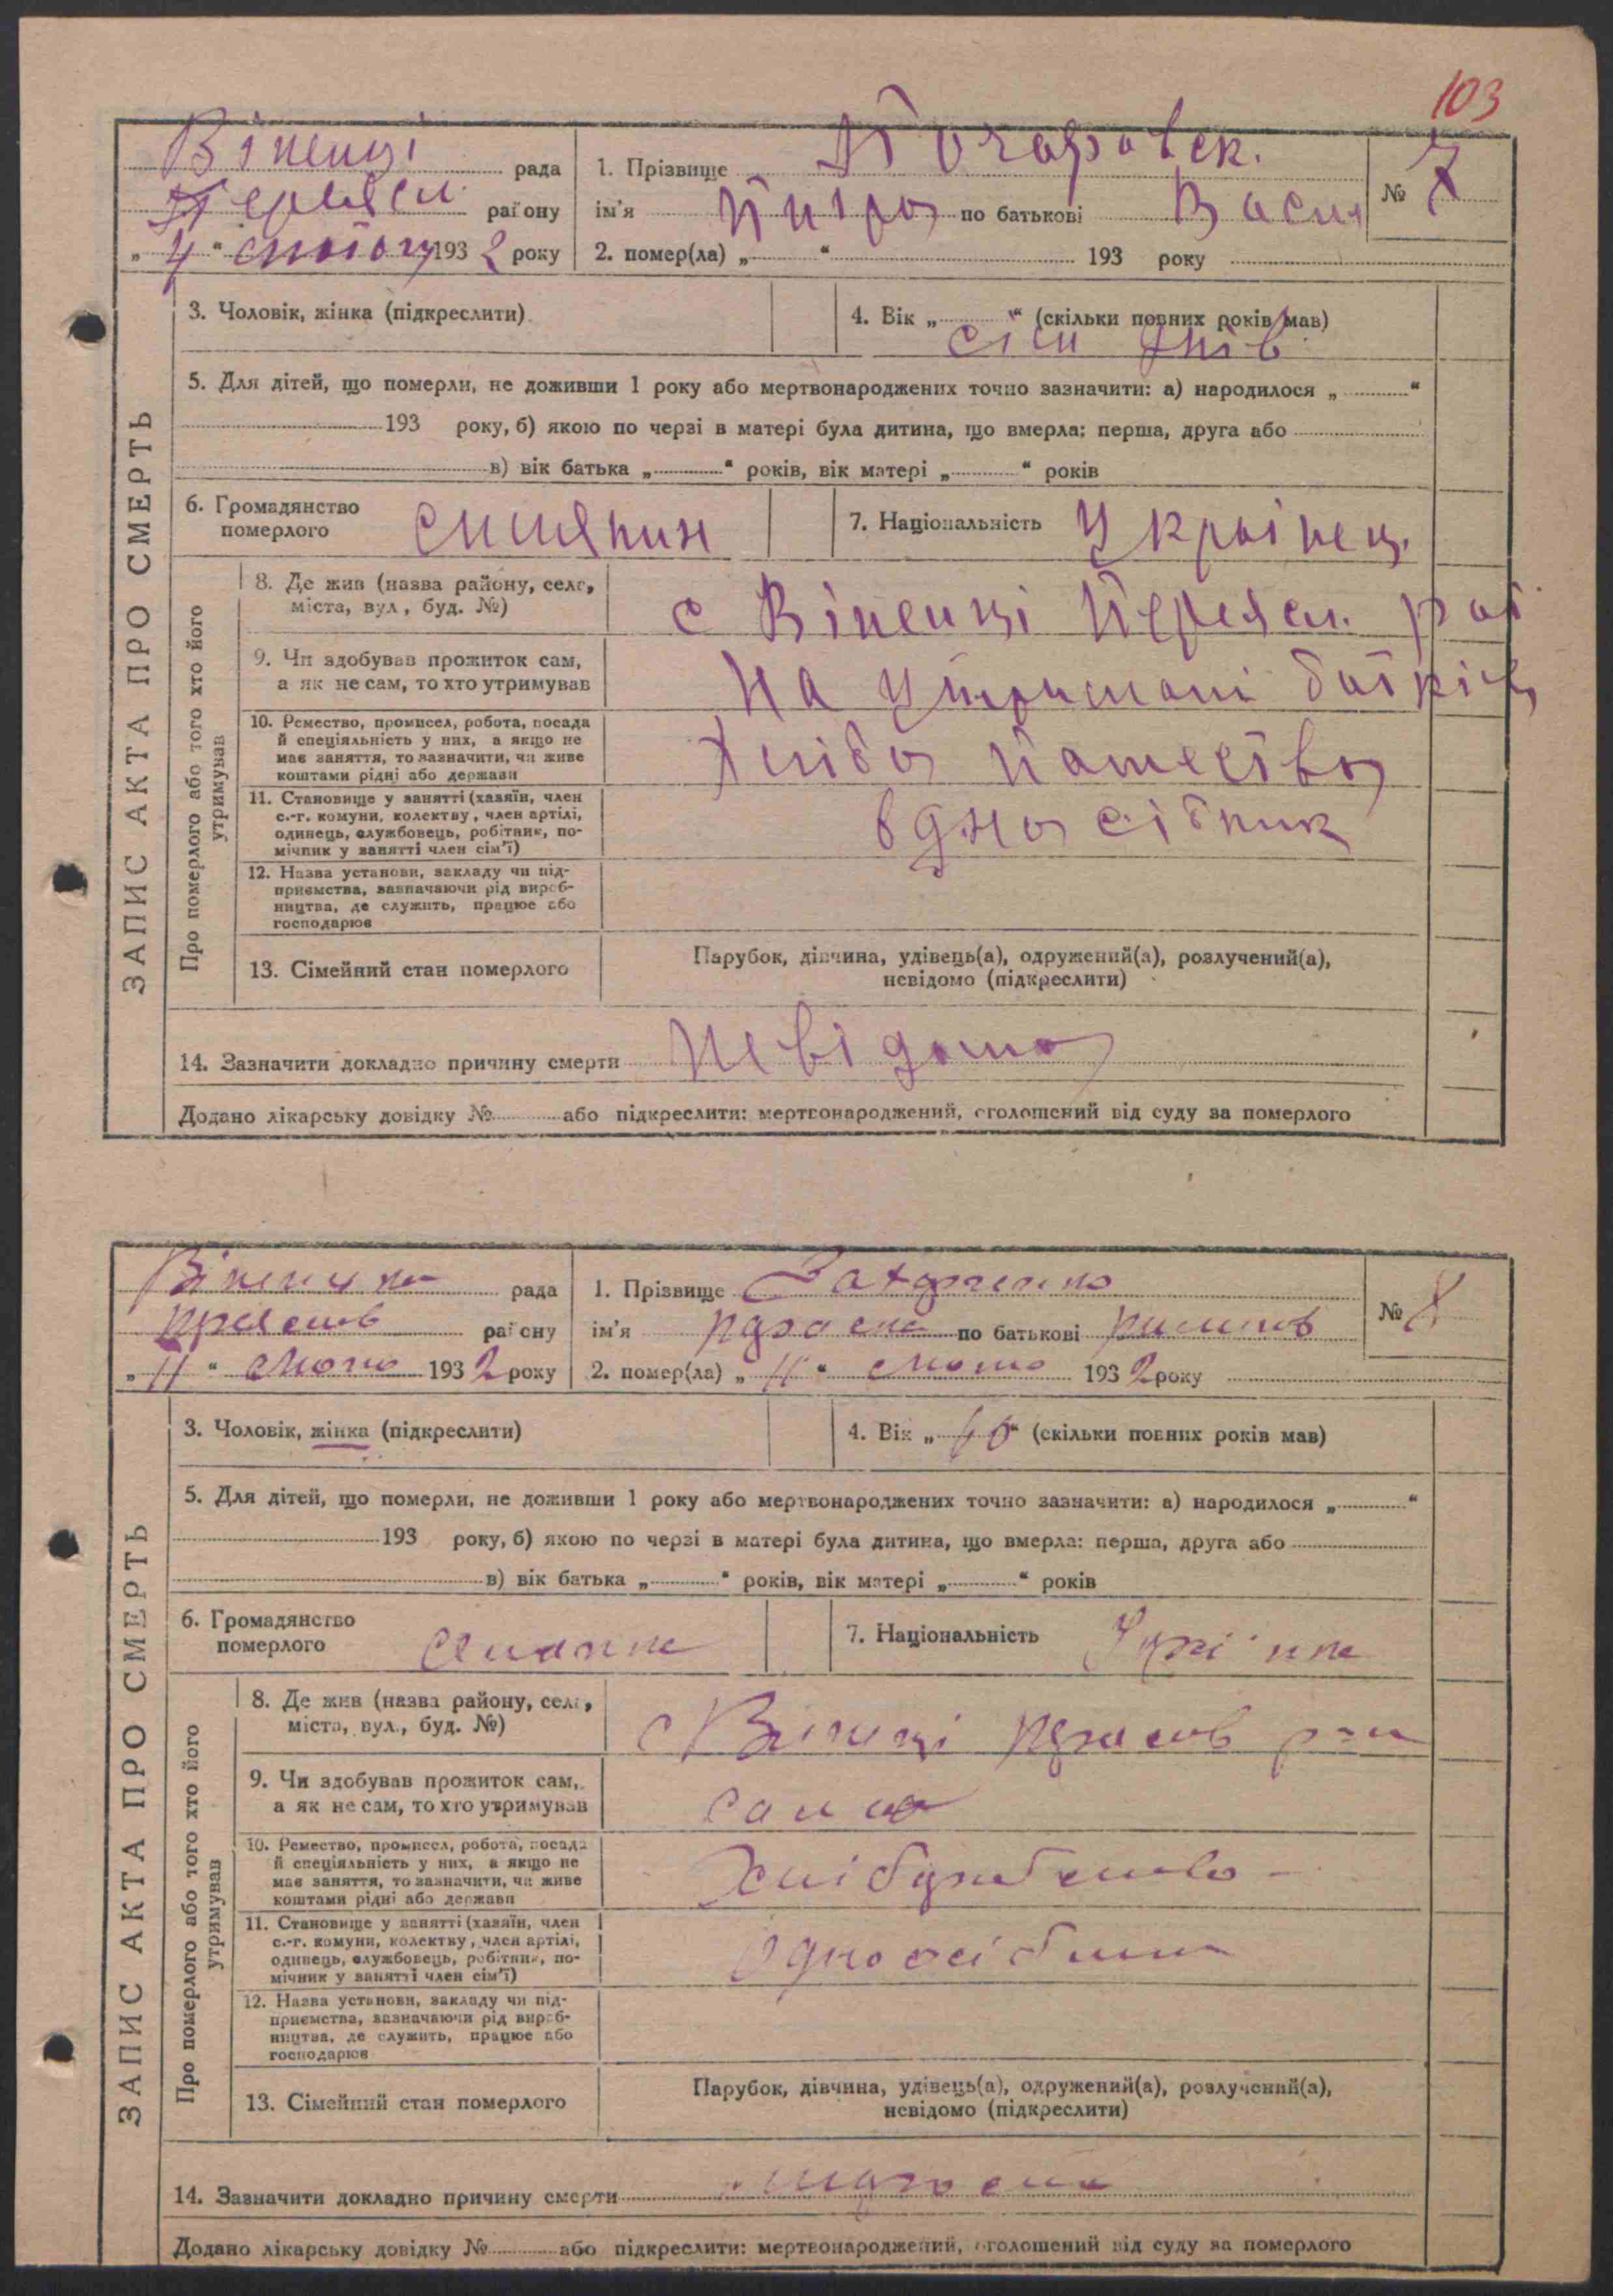 103
Віненці рада
Переясл. району
„4“ лютого 1932 року
1. Прізвище
ім'я Питро по батькові Васил
2. помер(ла) „ “ 193 року
№ 7
ЗАПИС АКТА ПРО СМЕРТЬ
3. Чоловік, жінка (підкреслити)
4. Вік „ “ (скільки повних років мав)
сім днів
5. Для дітей, що померли, не доживши 1 року або мертвонароджених точно зазначити: а) народилося „ “
193 року, б) якою по черзі в матері була дитина, що вмерла: перша, друга або
в) вік батька „ “ років, вік матері „ “ років
6. Громадянство
померлого
7. Національність Украінец.
Про померлого або того хто його
утримував
8. Де жив (назва району, село,
міста, вул., буд. №)
с Віненці Переясл. рай
9. Чи здобував прожиток сам,
а як не сам, то хто утримував
на утримані батьків
10. Ремество, промисел, робота, посада
й спеціяльність у них, а якщо не
має заняття, то зазначити, чи живе
коштами рідні або держави
11. Становище у занятті (хазяїн, член
с.-г. комуни, колективу, член артілі,
одинець, службовець, робітник, по-
мічник у занятті член сім'ї)
одно сібник
12. Назва установи, закладу чи під-
приємства, зазначаючи рід вироб-
ництва, де служить, працює або
господарює
13. Сімейний стан померлого
Парубок, дівчина, удівець(а), одружений(а), розлучений(а),
невідомо (підкреслити)
14. Зазначити докладно причину смерти невідомо
Додано лікарську довідку № або підкреслити: мертвонароджений, оголошений від суду за померлого
рада
району
„11“ 1932 року
1. Прізвище Захарченко
ім'я по батькові
2. помер(ла) „11“ 1932 року
№ 8
ЗАПИС АКТА ПРО СМЕРТЬ
3. Чоловік, жінка (підкреслити)
4. Вік „ “ (скільки повних років мав)
5. Для дітей, що померли, не доживши 1 року або мертвонароджених точно зазначити: а) народилося „ “
193 року, б) якою по черзі в матері була дитина, що вмерла: перша, друга або
в) вік батька „ “ років, вік матері „ “ років
6. Громадянство
померлого
7. Національність
Про померлого або того хто його
утримував
8. Де жив (назва району, село,
міста, вул., буд. №)
с Віненці
9. Чи здобував прожиток сам,
а як не сам, то хто утримував
сама
10. Ремество, промисел, робота, посада
й спеціяльність у них, а якщо не
має заняття, то зазначити, чи живе
коштами рідні або держави
11. Становище у занятті (хазяїн, член
с.-г. комуни, колективу, член артілі,
одинець, службовець, робітник, по-
мічник у занятті член сім'ї)
12. Назва установи, закладу чи під-
приємства, зазначаючи рід вироб-
ництва, де служить, працює або
господарює
13. Сімейний стан померлого
Парубок, дівчина, удівець(а), одружений(а), розлучений(а),
невідомо (підкреслити)
14. Зазначити докладно причину смерти
Додано лікарську довідку № або підкреслити: мертвонароджений, оголошений від суду за померлого